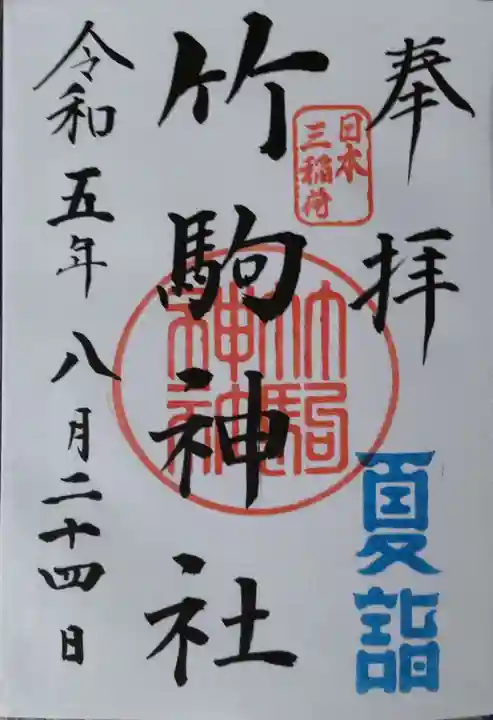 奉拝
夏詣
日本
三稲荷
竹駒神社
竹駒
神社
令和五年八月二十四日